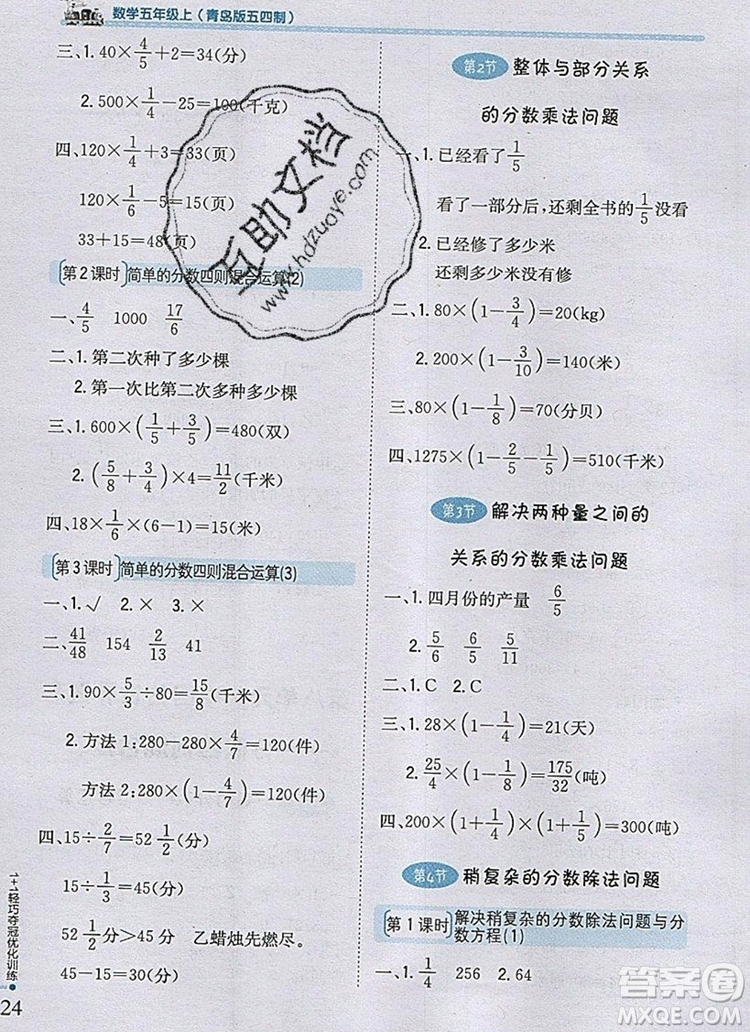 数学五年级上(青岛版五四制)
三、1. 40×4/5+2=34(千克)
2. 500×1/4-25=100(千克)
四、120×1/4+3=33(页)
120×1/6-5=15(页)
33+15=48(页)
第2课时 简单的分数四则混合运算(2)
一、4/5 1000 17/6
二、1. 第二次种了多少棵
2. 第一次比第二次多种多少棵
三、1. 600×(1/5+3/5)=480(双)
2. (5/8+3/4)×4=11/2(千米)
四、18×1/6×(6-1)=15(千米)
第3课时 简单的分数四则混合运算(3)
一、1. √ 2. × 3. ×
二、41/48 154 2/13 41
三、1. 90×5/3÷80=15/8(千米)
2. 方法1:280-280×4/7=120(件)
方法2:280×(1-4/7)=120(件)
四、15÷2/7=52 1/2(分)
15÷1/3=45(分)
52 1/2分>45分 乙蜡烛先燃尽。
45-15=30(分)
1+1轻巧夺冠优化训练
24
第2节 整体与部分关系
的分数乘法问题
一、1. 已经看了1/5
看了一部分后,还剩全书的1/5没看
2. 已经修了多少米
还剩多少米没有修
二、1. 80×(1-3/4)=20(kg)
2. 200×(1-3/10)=140(米)
三、80×(1-1/8)=70(分贝)
四、1275×(1-2/5-1/5)=510(千米)
第3节 解决两种量之间的
关系的分数乘法问题
一、1. 四月份的产量 6/5
2. 5/6 6/5 5/11
二、1. C 2. C
三、1. 28×(1-1/4)=21(天)
2. 25/4×(1-1/8)=175/32(吨)
四、200×(1+1/4)×(1+1/5)=300(吨)
第4节 稍复杂的分数除法问题
第1课时 解决稍复杂的分数除法问题与分
数方程(1)
一、1. 1/4 256 2. 64
互助文档
hdzuoye.com
答案圈
MXQE.COM